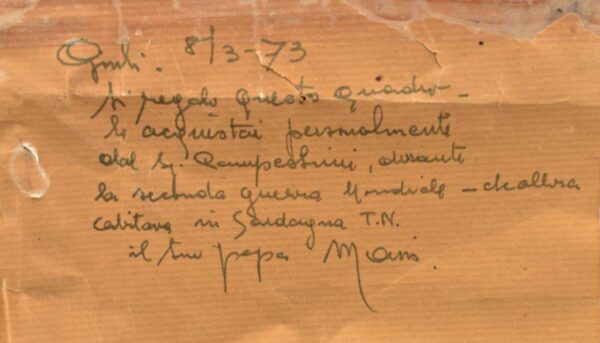 8/3-73
ti regalo questo quadro -
lo acquistai personalmente
dal Sig. Campestrini, durante
la seconda guerra Mondiale - che allora
abitava in Sardagna T.N.
il tuo papà Mario.